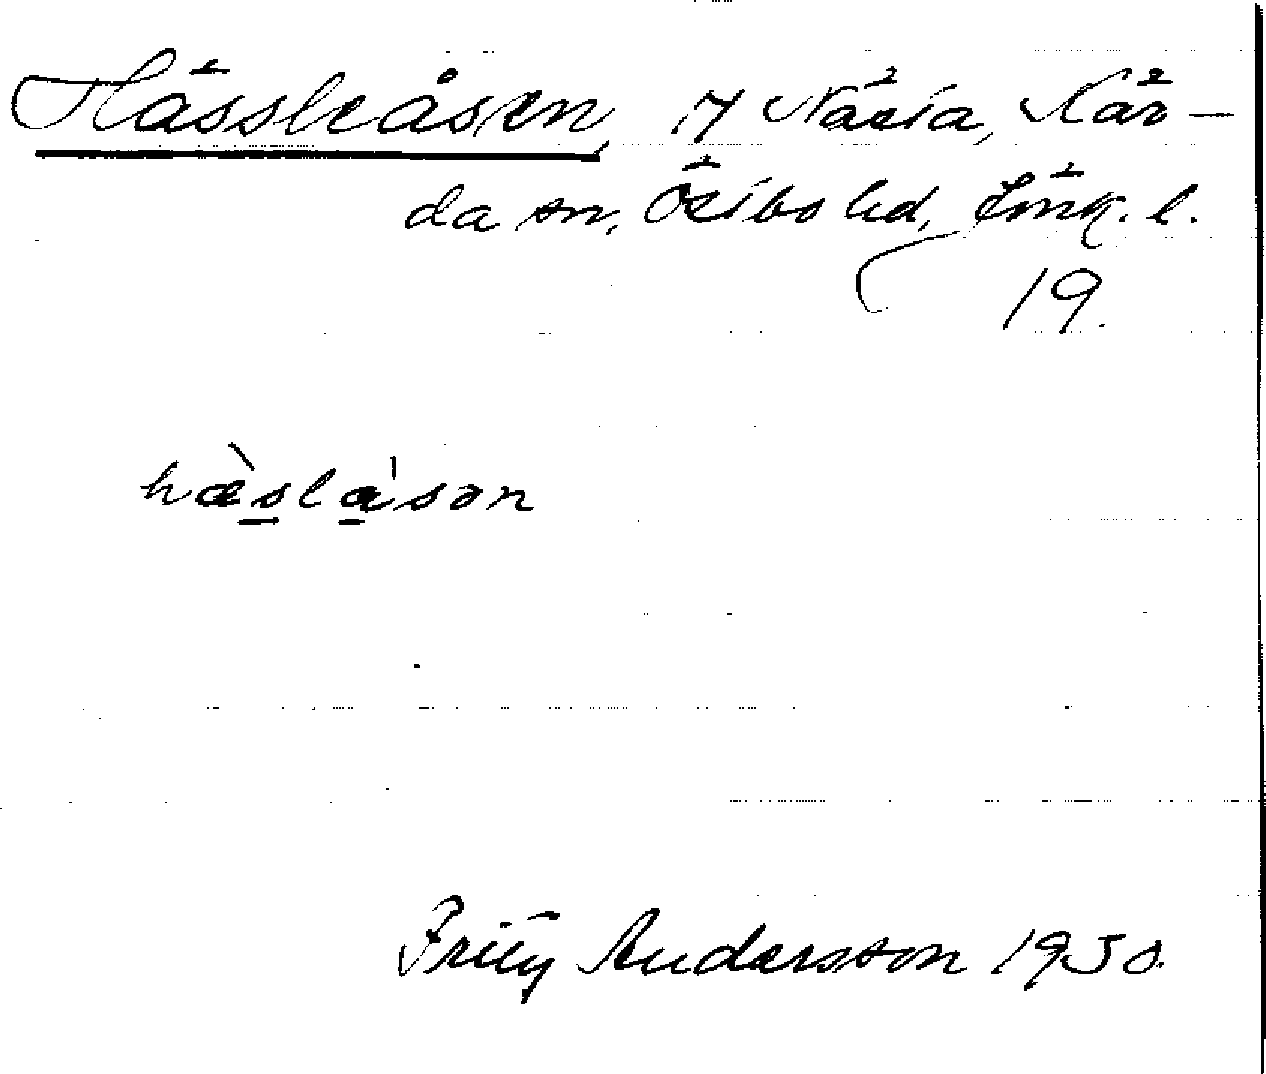 Hässleåsen, 17 Näsia, Kär-
da sn, Östbo hd, Jönk. l.
19.
hæslåsən
Fritz Andersson 1930.